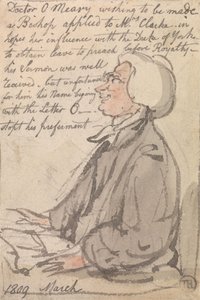 Doctor O Meary wishing to be made
a Bishop applied to Mrs Clarke.. in
hopes her influence with the Duke of York
to obtain leave to preach before Royalty —
his Sermon was well
received, but unfortunately
for him his Name begins
with the Letter O —
stopt his preferment
1809 March